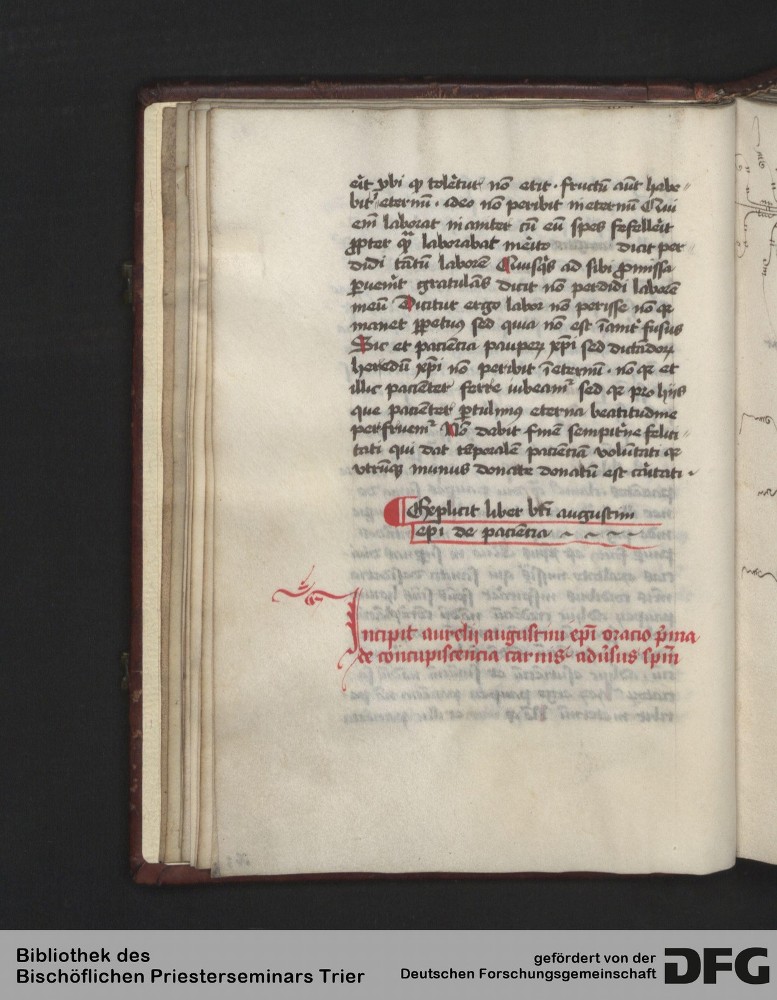 eīt vbi qͥ tolētur nō erit · fructū aūt habe
bit eternū · ideo nō peribit in eternū Qui
em̄ laborat inaniter cū eū spes fefellerit
ꝓpter quā laborabat merito dicit per
didi tantū laborē Quisquis ad sibi ꝓmissa
ꝑuenit gratulans dicit nō perdidi laborē
meū Dicitur ergo labor nō perisse nō qꝛ
manet ꝑpetuus sed quia nō est īanitˀ fusus
Sic et paciēcia pauperū xp̄i sed ditandorꝝ
heredū xp̄i nō peribit īeternū · nō qꝛ et
illic pacienter ferre iubeamˀ sed qꝛ pro hijs
que pacienter ꝑtulimus eterna beatitudine
perfruemˀ Nō dabit finē sempiterne felici
tati qui dat tēporalē pacienciā volūtati qꝛ
vtrūqꝫ munus donate donatū est caritati ·
Explicit liber bt̄i augustini
ep̄i de paciēcia
Incipit aurelij augustini ep̄i oracio p̄ma
de concupiscencia carnis adūsus sp̄m
Bibliothek des
Bischöflichen Priesterseminars Trier
gefördert von der
Deutschen Forschungsgemeinschaft
DFG